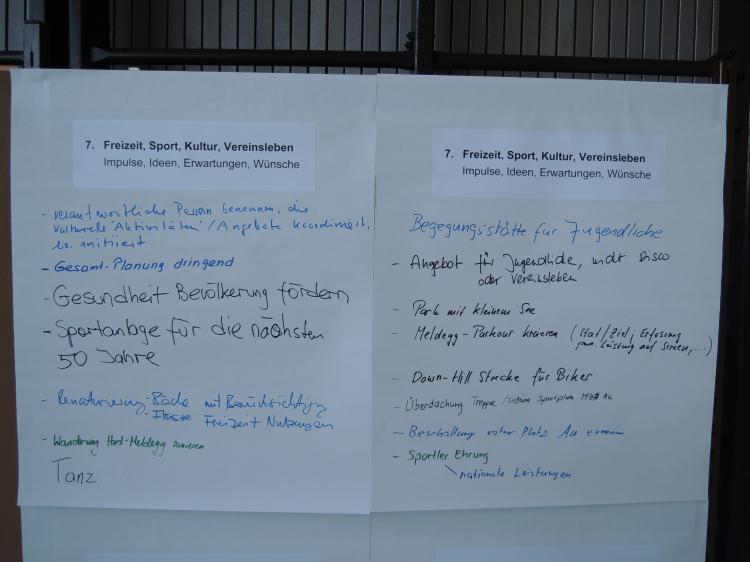 7. Freizeit, Sport, Kultur, Vereinsleben
Impulse, Ideen, Erwartungen, Wünsche
- verantwortliche Person benennen, die
kulturelle "Aktivitäten"/Angebote koordiniert,
bzw. initiiert
- Gesamt-Planung dringend
- Gesundheit Bevölkerung fördern
- Sportanlage für die nächsten
50 Jahre
- Renaturierung - Bäche mit Berücksichtigung
- Flüsse Freizeit Nutzungen
- Wanderweg Hard-Meldegg sanieren
Tanz
7. Freizeit, Sport, Kultur, Vereinsleben
Impulse, Ideen, Erwartungen, Wünsche
Begegungsstätte für Jugendliche
- Angebot für Jugendliche, nicht Disco
oder Vereinsleben
- Park mit kleinem See
- Meldegg-Parkour kreieren (Start/Ziel; Erfassung
Leistung auf Screen, ....)
- Down-Hill Strecke für Biker
- Überdachung Treppe/Tribüne Sportplatz
- Beschallung roter Platz Aa erneuern
- Sportler Ehrung
nationale Leistungen